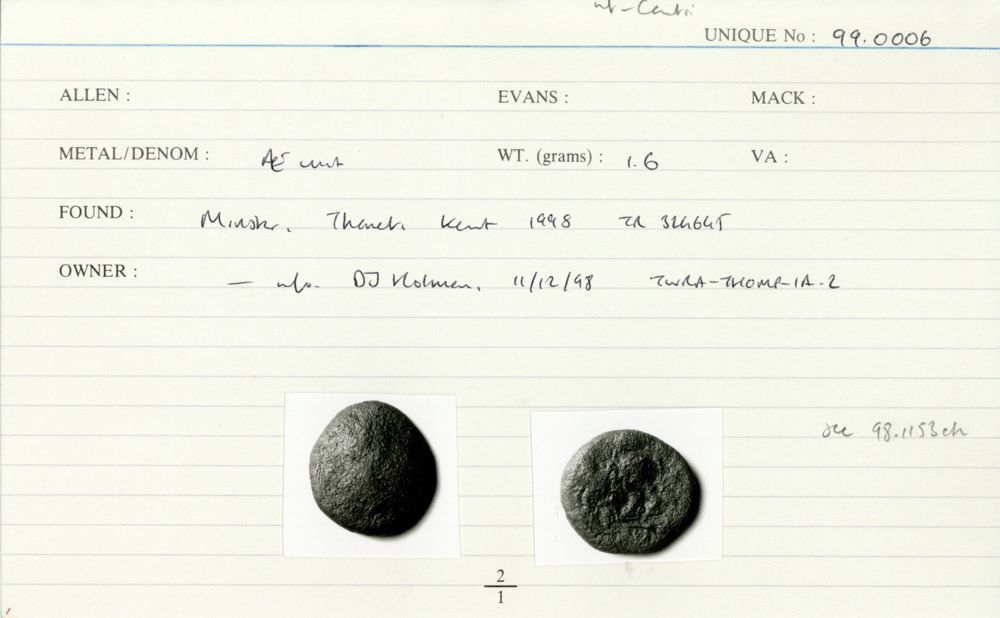 UNIQUE No : 99.0006
ALLEN : EVANS : MACK :
METAL/DENOM : Æ unit WT. (grams) : 1.6 VA :
FOUND : Minster, Thanet, Kent 1998 TR 324645
OWNER : — info. DJ Holman, 11/12/98 TWRA-THOMP-IA-2
see 98.1153
2
1